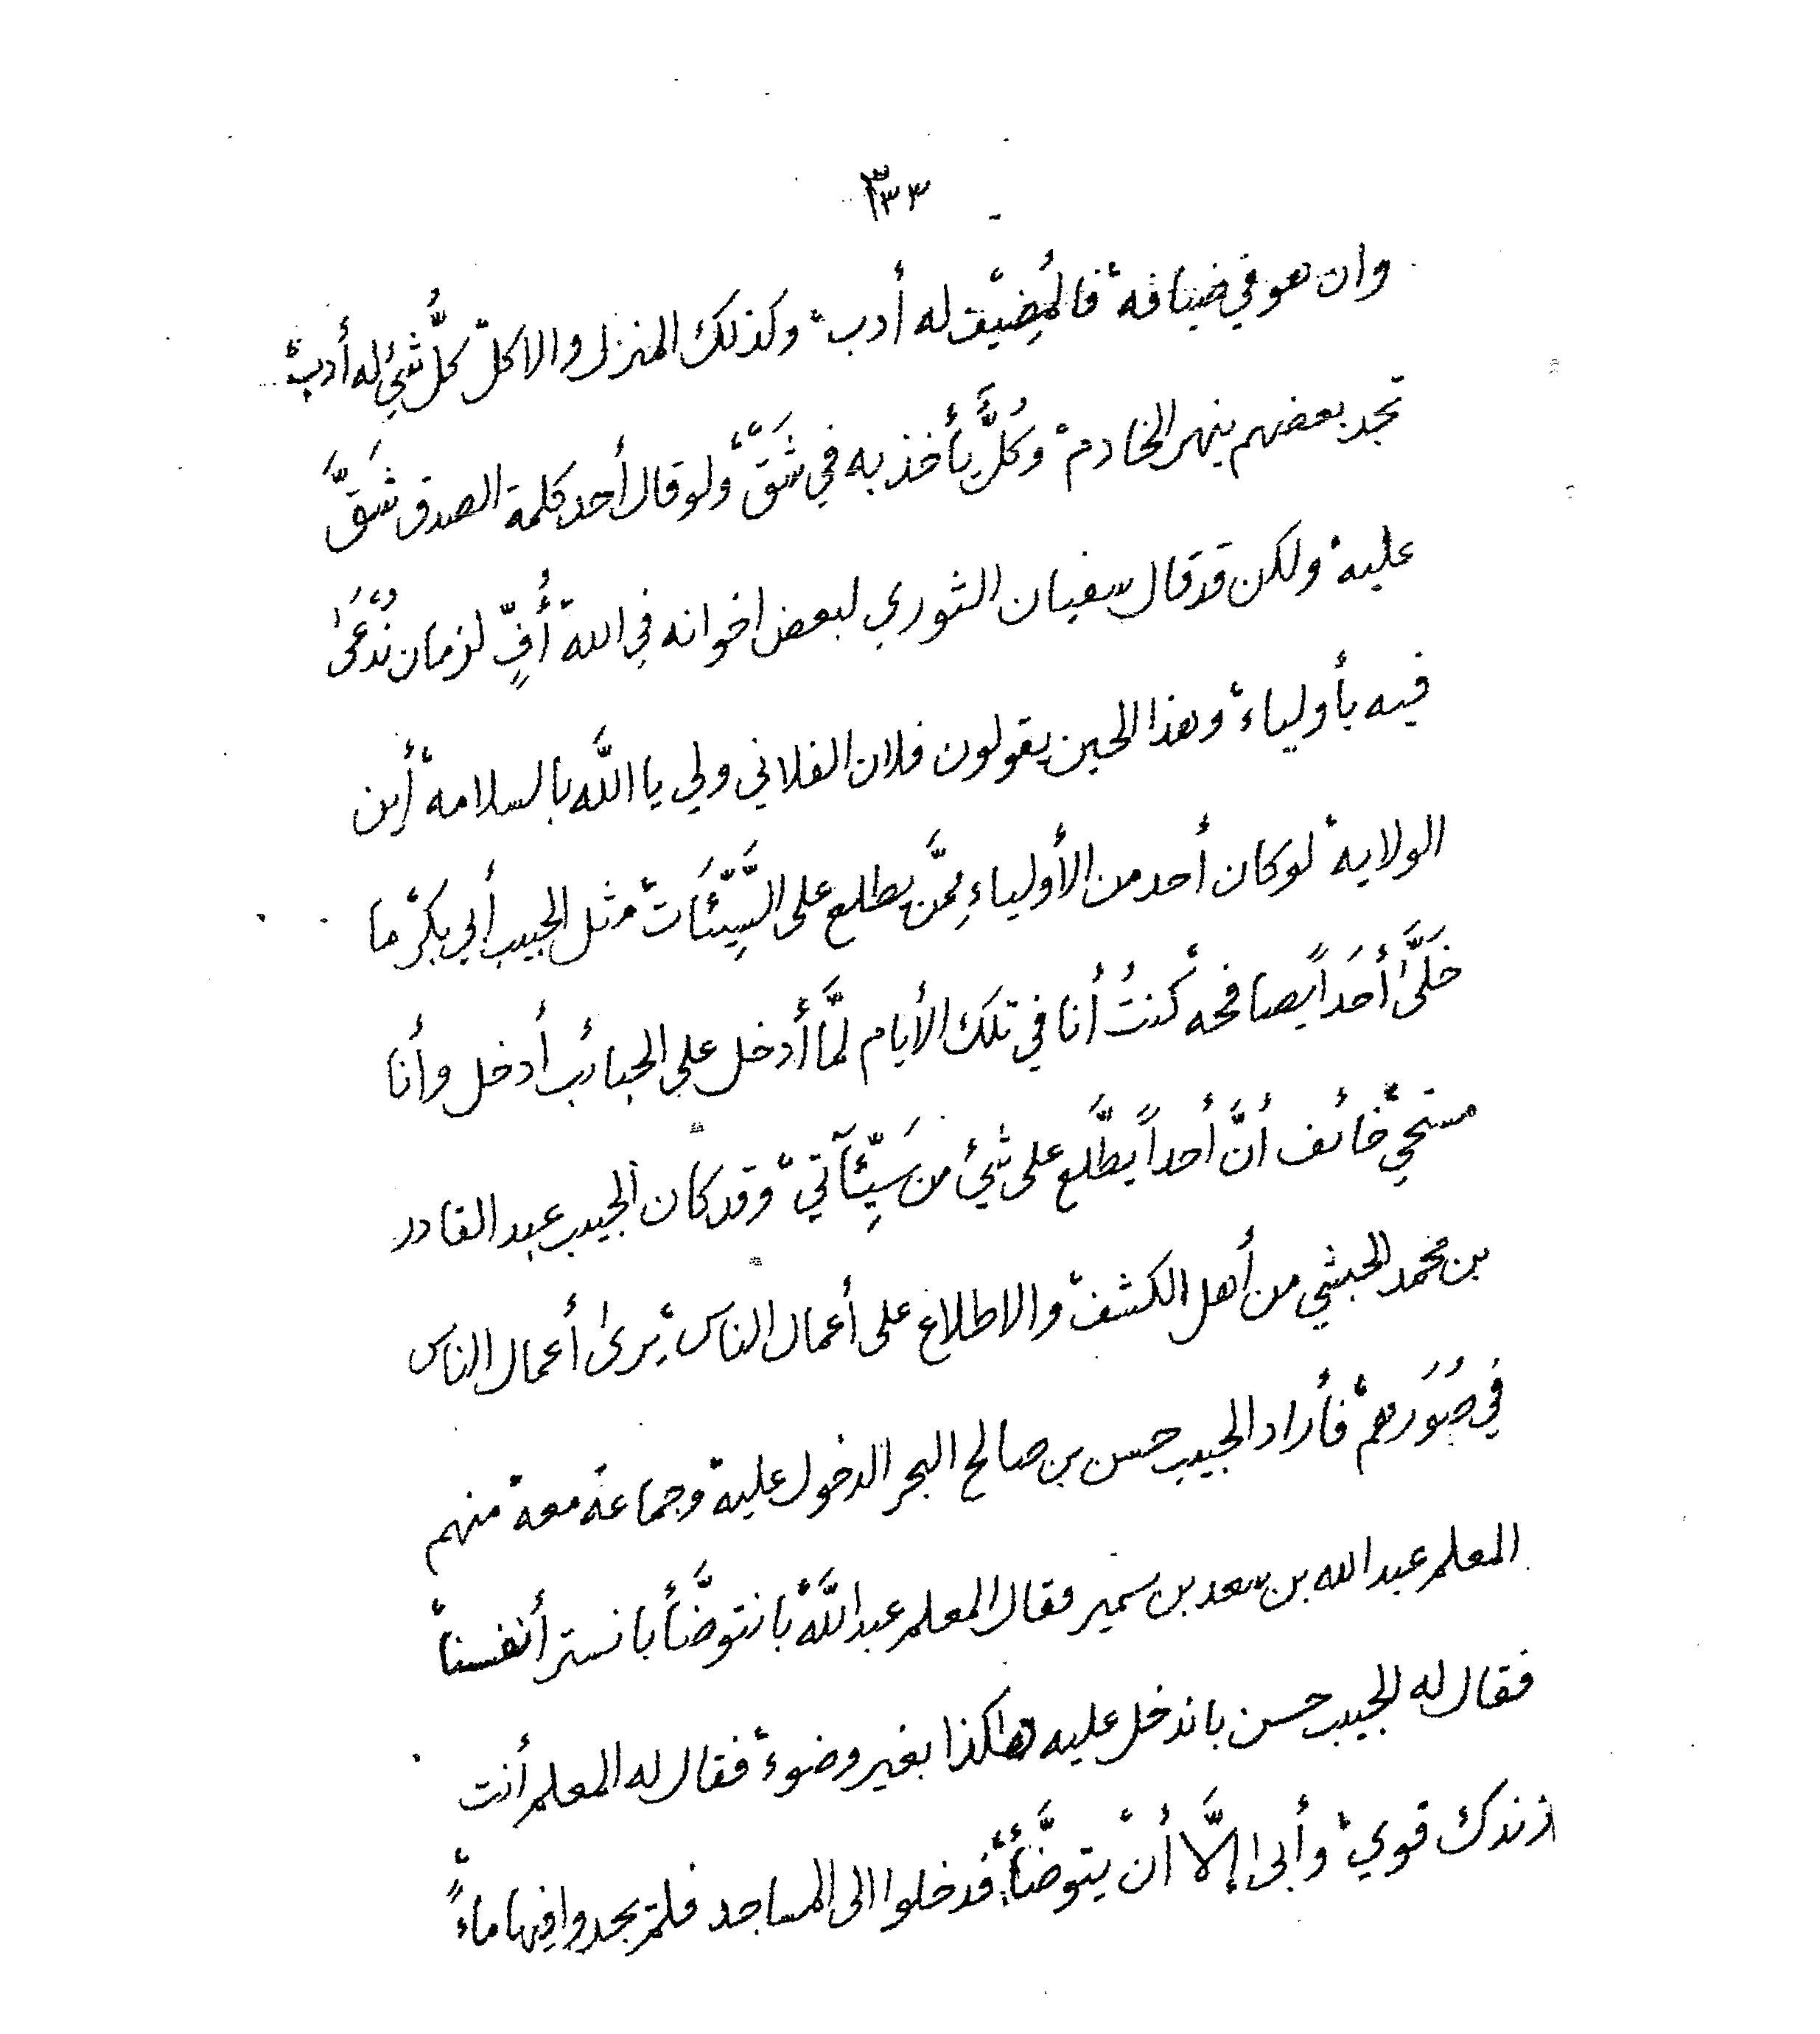 ٣٣٣
وان هو في ضيافه، فالمُضِيْف له أدب، وكذلك المنزل والاكل، كلُّ شيء له أدب،
تجد بعضهم ينهر الخادم، وكُلٌّ يأخذ به في شَقّ، ولو قال أحد كلمة الصدق شَقَّ
عليه، ولكن قد قال سفيان الثوري لبعض اخوانه في الله، أُفٍّ لزمان نُدْعَىٰ
فيه بأولياء، وهذا الحين يقولون فلان الفلاني ولي يا الله بالسلامه، أين
الولايه، لو كان أحد من الأولياءِ ممَّن يطلع على السَّيِّئَات، مثل الحبيب أبي بكر، ما
خَلَّىٰ أحَداً يصافحه، كنتُ أنا في تلك الأيام لمَّا أدخل على الحبائب أدخل وأنا
مستحي، خائف أنَّ أحداً يطَّلع على شيء من سَيِّئآتي، وقد كان الحبيب عبد القادر
بن محمد الحبشي من أهل الكشف، والاطلاع على أعمال الناس، يرىٰ أعمال الناس
في صُوَرهم، فأراد الحبيب حسن بن صالح البحر الدخول عليه، وجماعة معه، منهم
المعلم عبد الله بن سعد بن سمير فقال المعلم عبد اللَّه، بانتوضَّأ بانستر أنفسنا،
فقال له الحبيب حسن باندخل عليه هاكذا بغير وضوء، فقال له المعلم أنت
زندك قوي، وأبىٰ إلَّا أنْ يتوضَّأ، فدخلوا الى المساجد فلم يجدوا فيها ماءً،